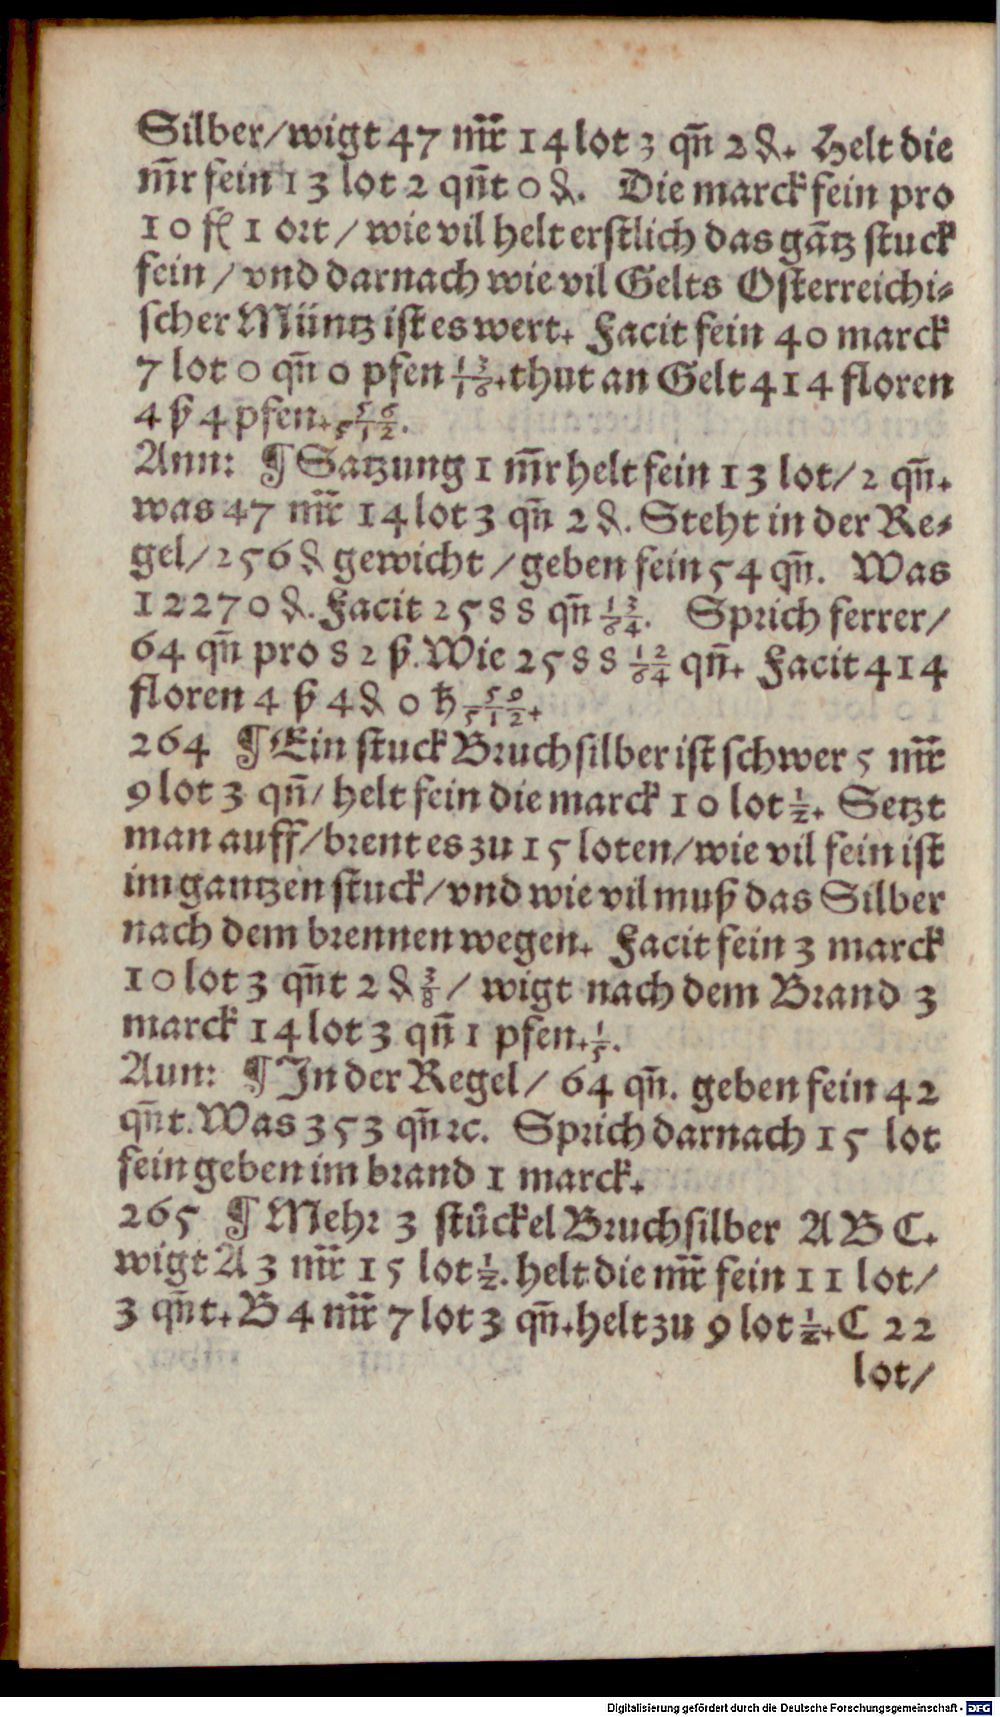 Silber/wigt 47 mr̃ 14 lot 3 qñ 2 ₰. Helt die
mr̃ fein 13 lot 2 qñt 0 ₰. Die marck fein pro
10 fl 1 ort / wie vil helt erstlich das gãtz stuck
fein / vnd darnach wie vil Gelts Osterreichi⸗
scher Müntz ist es wert. Facit fein 40 marck
7 lot 0 qñ 0 pfen 13/16. thut an Gelt 414 floren
4 ß 4 pfen. 56/512.
Ann: ¶ Satzung 1 mr̃ helt fein 13 lot/ 2 qñ.
was 47 mr̃ 14 lot 3 qñ 2 ₰. Steht in der Re⸗
gel/ 256 ₰ gewicht / geben fein 54 qñ. Was
12270 ₰. Facit 2588 qñ 13/64. Sprich ferrer/
64 qñ pro 82 ß. Wie 2588 12/64 qñ. Facit 414
floren 4 ß 4 ₰ 0 hƷ 50/512.
264 ¶ Ein stuck Bruchsilber ist schwer 5 mr̃
9 lot 3 qñ/ helt fein die marck 10 lot ½. Setzt
man auff/brent es zu 15 loten/wie vil fein ist
im gantzen stuck/vnd wie vil muß das Silber
nach dem brennen wegen. Facit fein 3 marck
10 lot 3 qñt 2 ₰ ⅜ / wigt nach dem Brand 3
marck 14 lot 3 qñ 1 pfen. ⅕.
Aun: ¶ In der Regel/ 64 qñ. geben fein 42
qñt. Was 353 qñ ꝛc. Sprich darnach 15 lot
fein geben im brand 1 marck.
265 ¶ Mehr 3 stůckel Bruchsilber A B C.
wigt A 3 mr̃ 15 lot ½. helt die mr̃ fein 11 lot/
3 qñt. B 4 mr̃ 7 lot 3 qñ. helt zu 9 lot ½. C 22
lot/
Digitalisierung gefördert durch die Deutsche Forschungsgemeinschaft - DFG